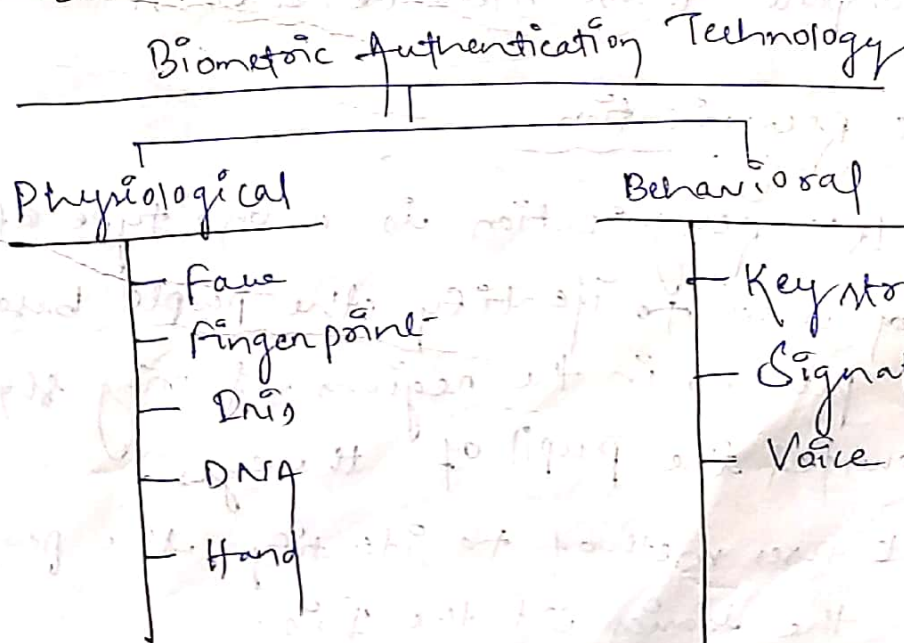 Biometric Authentication Technology
Physiological
Face
Fingerprint
Iris
DNA
Hand
Behavioral
Key str
Signa
Voice